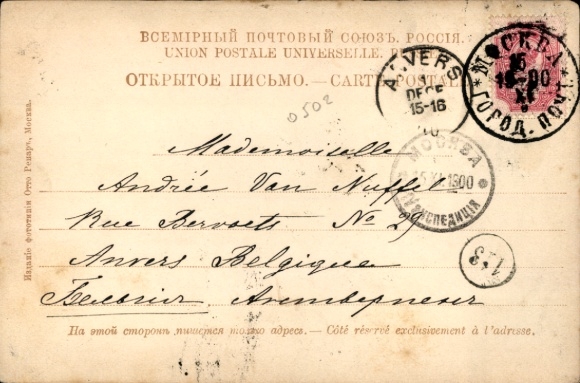 ВСЕМІРНЫЙ ПОЧТОВЫЙ СОЮЗЪ. РОССІЯ.
UNION POSTALE UNIVERSELLE.
ОТКРЫТОЕ ПИСЬМО.—CARTE POSTALE
ANVERS
DECE
15-16
МОСКВА
16
XI
ГОРОД. ПОЧТ
0502
МОСКВА
XI 1900
ЭКСПЕДИЦІЯ
Mademoiselle
Andrée Van Nuffel
Rue Bervoets No 29
Anvers Belgique
Бельгія Антверпенъ
123
На этой сторонѣ пишется только адресъ.— Côté réservé exclusivement à l'adresse.
Изданіе фототипіи Отто Ренаръ, Москва.